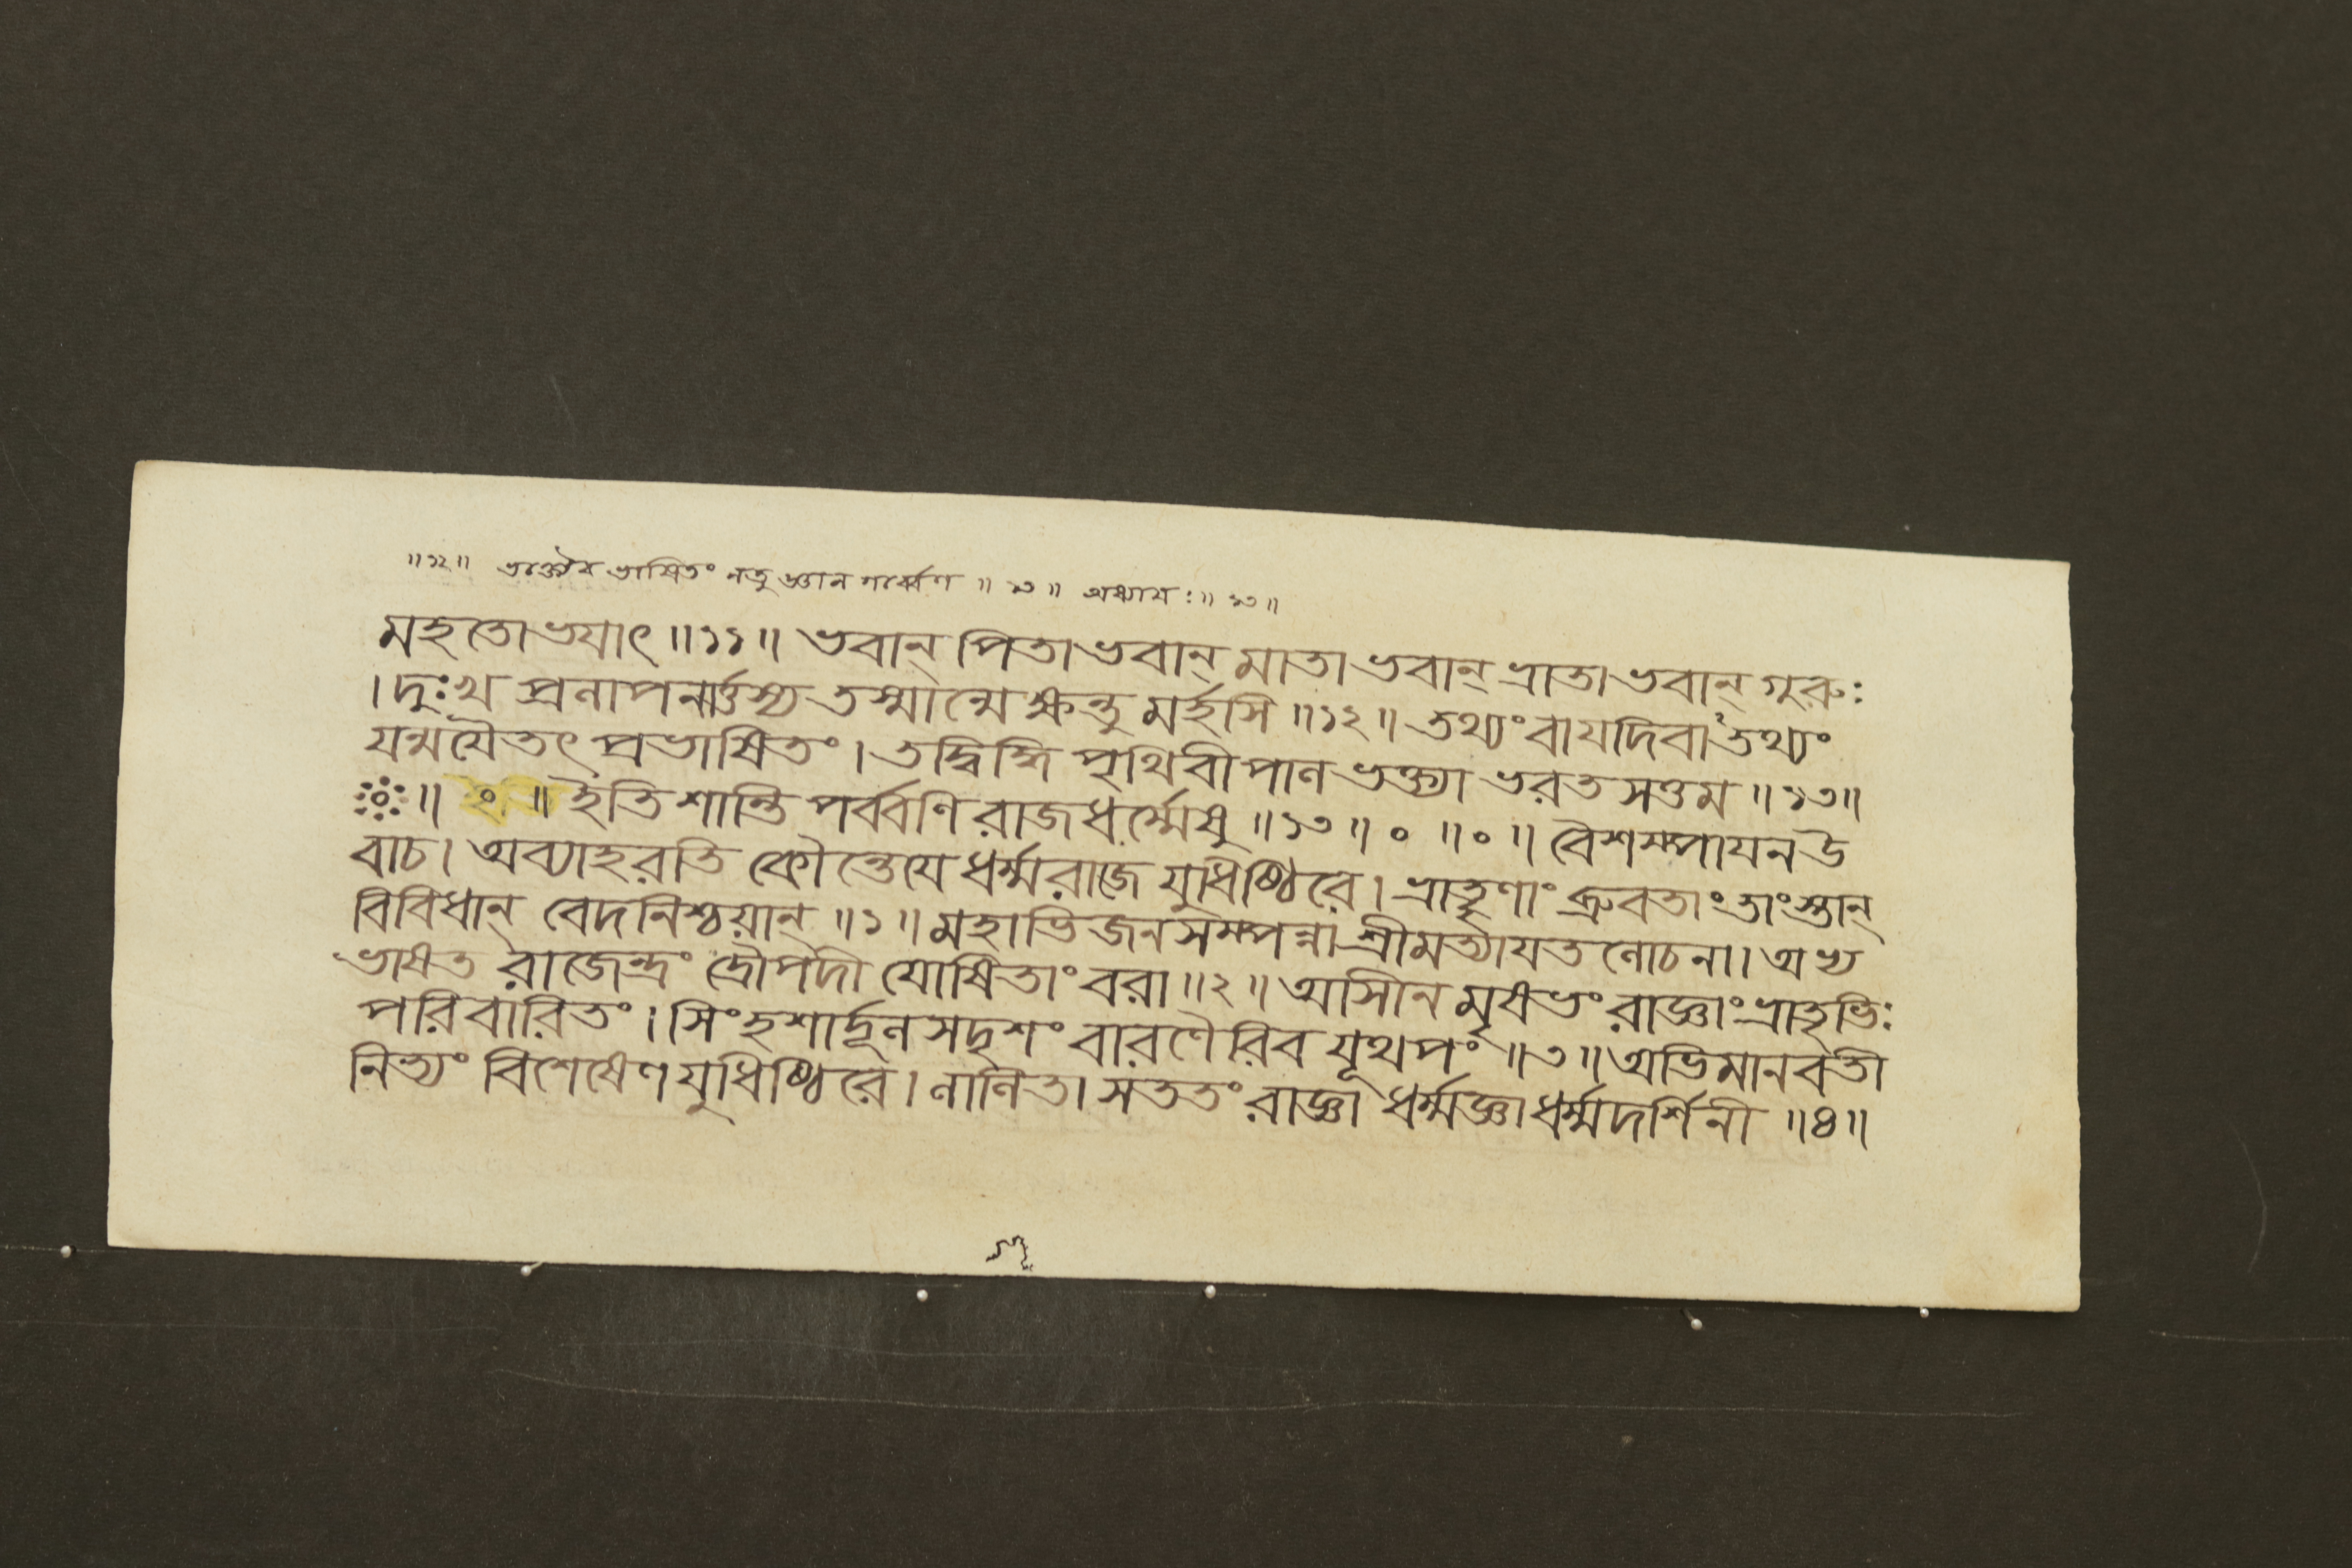 ॥১২॥ ভক্ত্যৈব ভাষিতং নতু জ্ঞান গর্ব্বেণ ॥ ১৩ ॥ অধ্যায়ঃ॥ ১৩॥
মহতোভযাৎ॥১১॥ ভবান্ পিতাভবান্ মাতাভবান্ ভ্রাতাভবান্ গুরুঃ
।দুঃখপ্রলাপলার্ত্তস্য তস্মান্মে ক্ষন্তুমর্হসি॥১২॥ তথ্যং বাযদিবাঽতথ্যং
যন্মযৈতৎ প্রভাষিতং।তদ্বিদ্ধি পৃথিবীপাল ভক্ত্যা ভরতসত্তম॥১৩॥
॥ ॰ ॥ ইতি শান্তি পর্ব্বণি রাজধর্ম্মেষু ॥১৩॥ ॰ ॥ ॰ ॥ বৈশম্পাযন উ
বাচ। অব্যাহরতি কৌন্তেযে ধর্ম্মরাজে যুধিষ্ঠিরে। ভ্রাতৄণাং ব্রুবতাং তাংস্তান্
বিবিধান্ বেদনিশ্চয়ান্॥১॥ মহাভিজনসম্পন্না শ্রীমত্যাযতলোচনা। অভ্য
ভাষত রাজেন্দ্রং দ্রৌপদী যোষিতাং বরা॥২॥ আসীনমৃষভং রাজ্ঞাং ভ্রাতৃভিঃ
পরিবারিতং। সিংহশার্দ্দূলসদৃশং বারণৈরিব যূথপং॥৩॥ অভিমানবতী
নিত্যং বিশেষেণ যুধিষ্ঠিরে। লালিতা সততং রাজ্ঞা ধর্ম্মজ্ঞা ধর্ম্মদর্শিনী॥৪॥